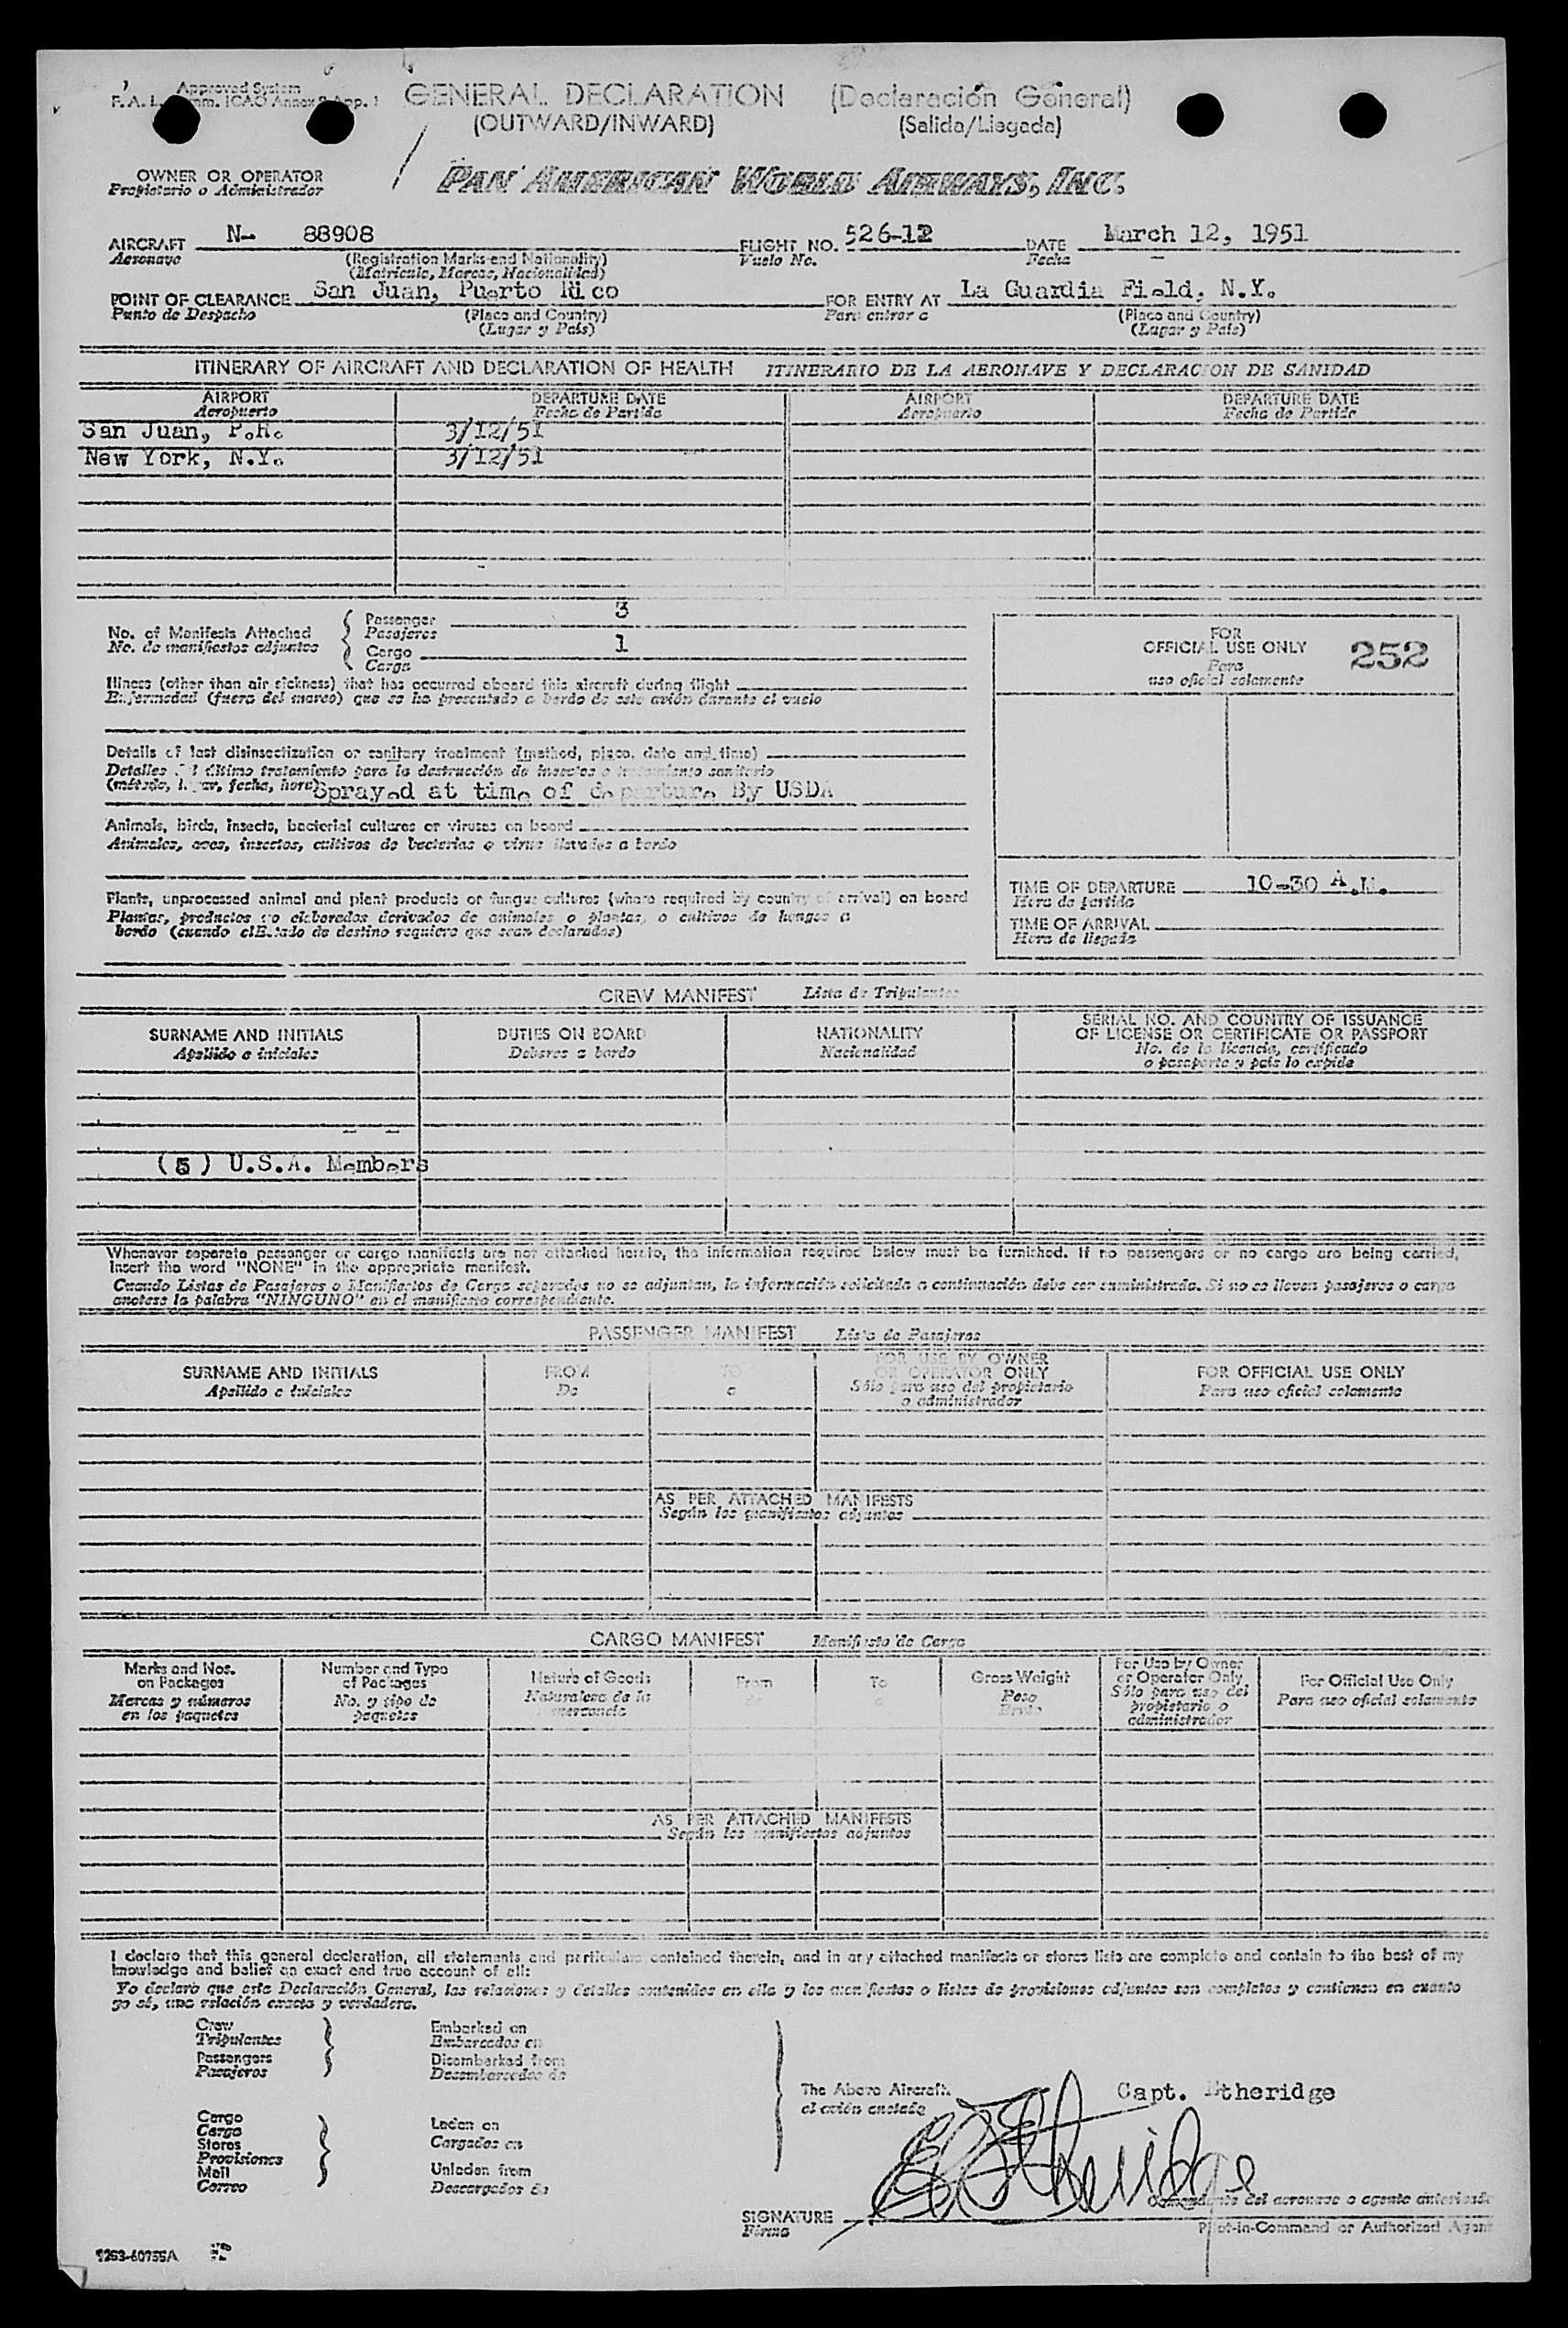 Approved System
GENERAL DECLARATION (Declaración General)
(OUTWARD/INWARD) (Salida/Llegada)
OWNER OR OPERATOR
Propietario o Administrador
PAN AMERICAN WORLD AIRWAYS, INC.
AIRCRAFT N- 88908 FLIGHT NO. 526-12 DATE March 12, 1951
Aeronave (Registration Marks and Nationality) Vuelo No. Fecha
(Matricula, Marcas, Nacionalidad)
POINT OF CLEARANCE San Juan, Puerto Rico FOR ENTRY AT La Guardia Field, N.Y.
Punto de Despacho (Place and Country) Para entrar a (Place and Country)
(Lugar y País) (Lugar y País)
ITINERARY OF AIRCRAFT AND DECLARATION OF HEALTH ITINERARIO DE LA AERONAVE Y DECLARACION DE SANIDAD
AIRPORT DEPARTURE DATE AIRPORT DEPARTURE DATE
Aeropuerto Fecha de Partida Aeropuerto Fecha de Partida
San Juan, P.R. 3/12/51
New York, N.Y. 3/12/51
No. of Manifests Attached
No. de manifiestos adjuntos
Passenger 3
Pasajeros
Cargo 1
Carga
FOR
OFFICIAL USE ONLY 252
Para
uso oficial solamente
Illness (other than air sickness) that has occurred aboard this aircraft during flight
Enfermedad (fuera del mareo) que se ha presentado a bordo de este avión durante el vuelo
Details of last disinsectization or sanitary treatment (method, place, date and time)
Detalles del último tratamiento para la destrucción de insectos o tratamiento sanitario
(método, lugar, fecha, hora) Sprayed at time of departure By USDA
Animals, birds, insects, bacterial cultures or viruses on board
Animales, aves, insectos, cultivos de bacterias o virus llevados a bordo
Plants, unprocessed animal and plant products or fungus cultures (where required by country of arrival) on board
Plantas, productos no elaborados derivados de animales o plantas, o cultivos de hongos a
bordo (cuando el Estado de destino requiera que sean declarados)
TIME OF DEPARTURE 10-30 A.M.
Hora de partida
TIME OF ARRIVAL
Hora de llegada
CREW MANIFEST Lista de Tripulantes
SURNAME AND INITIALS DUTIES ON BOARD NATIONALITY SERIAL NO. AND COUNTRY OF ISSUANCE
OF LICENSE OR CERTIFICATE OR PASSPORT
Apellido e iniciales Deberes a bordo Nacionalidad No. de la licencia, certificado
o pasaporte y país lo expide
(5) U.S.A. Members
Whenever separate passenger or cargo manifests are not attached hereto, the information required below must be furnished. If no passengers or no cargo are being carried,
insert the word "NONE" in the appropriate manifest.
Cuando Listas de Pasajeros o Manifiestos de Carga separados no se adjuntan, la información solicitada a continuación debe ser suministrada. Si no se llevan pasajeros o carga
anotese la palabra "NINGUNO" en el manifiesto correspondiente.
PASSENGER MANIFEST Lista de Pasajeros
SURNAME AND INITIALS FROM TO FOR USE BY OWNER
OR OPERATOR ONLY FOR OFFICIAL USE ONLY
Apellido e iniciales De a Sólo para uso del propietario
o administrador Para uso oficial solamente
AS PER ATTACHED MANIFESTS
Según los manifiestos adjuntos
CARGO MANIFEST Manifiesto de Carga
Marks and Nos.
on Packages
Marcas y números
en los paquetes
Number and Type
of Packages
No. y tipo de
paquetes
Nature of Goods
Naturaleza de la
mercancía
From
de
To
a
Gross Weight
Peso
Bruto
For Use by Owner
or Operator Only
Sólo para uso del
propietario o
administrador
For Official Use Only
Para uso oficial solamente
AS PER ATTACHED MANIFESTS
Según los manifiestos adjuntos
I declare that this general declaration, all statements and particulars contained therein, and in any attached manifests or stores lists are complete and contain to the best of my
knowledge and belief an exact and true account of all:
Yo declaro que esta Declaración General, las relaciones y detalles contenidos en ella y los manifiestos o listas de provisiones adjuntos son completos y contienen en cuanto
yo sé, una relación exacta y verdadera.
Crew
Tripulantes
Passengers
Pasajeros
Embarked on
Embarcados en
Disembarked from
Desembarcados de
Cargo
Carga
Stores
Provisiones
Mail
Correo
Laden on
Cargados en
Unladen from
Descargados de
The Above Aircraft
el avión anotado
Capt. Etheridge
SIGNATURE
Firma
Comandante del aeronave o agente autorizado
Pilot-in-Command or Authorized Agent